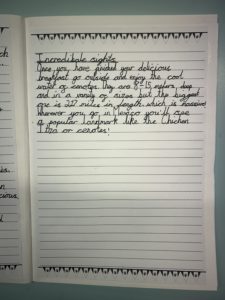 Incredible sights
Once you have finished your delicious
breakfast go outside and enjoy the cool
water of cenotes they are 8-15 meters deep
and in a variety of sizes but the biggest
one is 227 miles in length which is massive
wherever you go in Mexico you'll see
a popular landmark like the Chicken
Itza or cenotes!